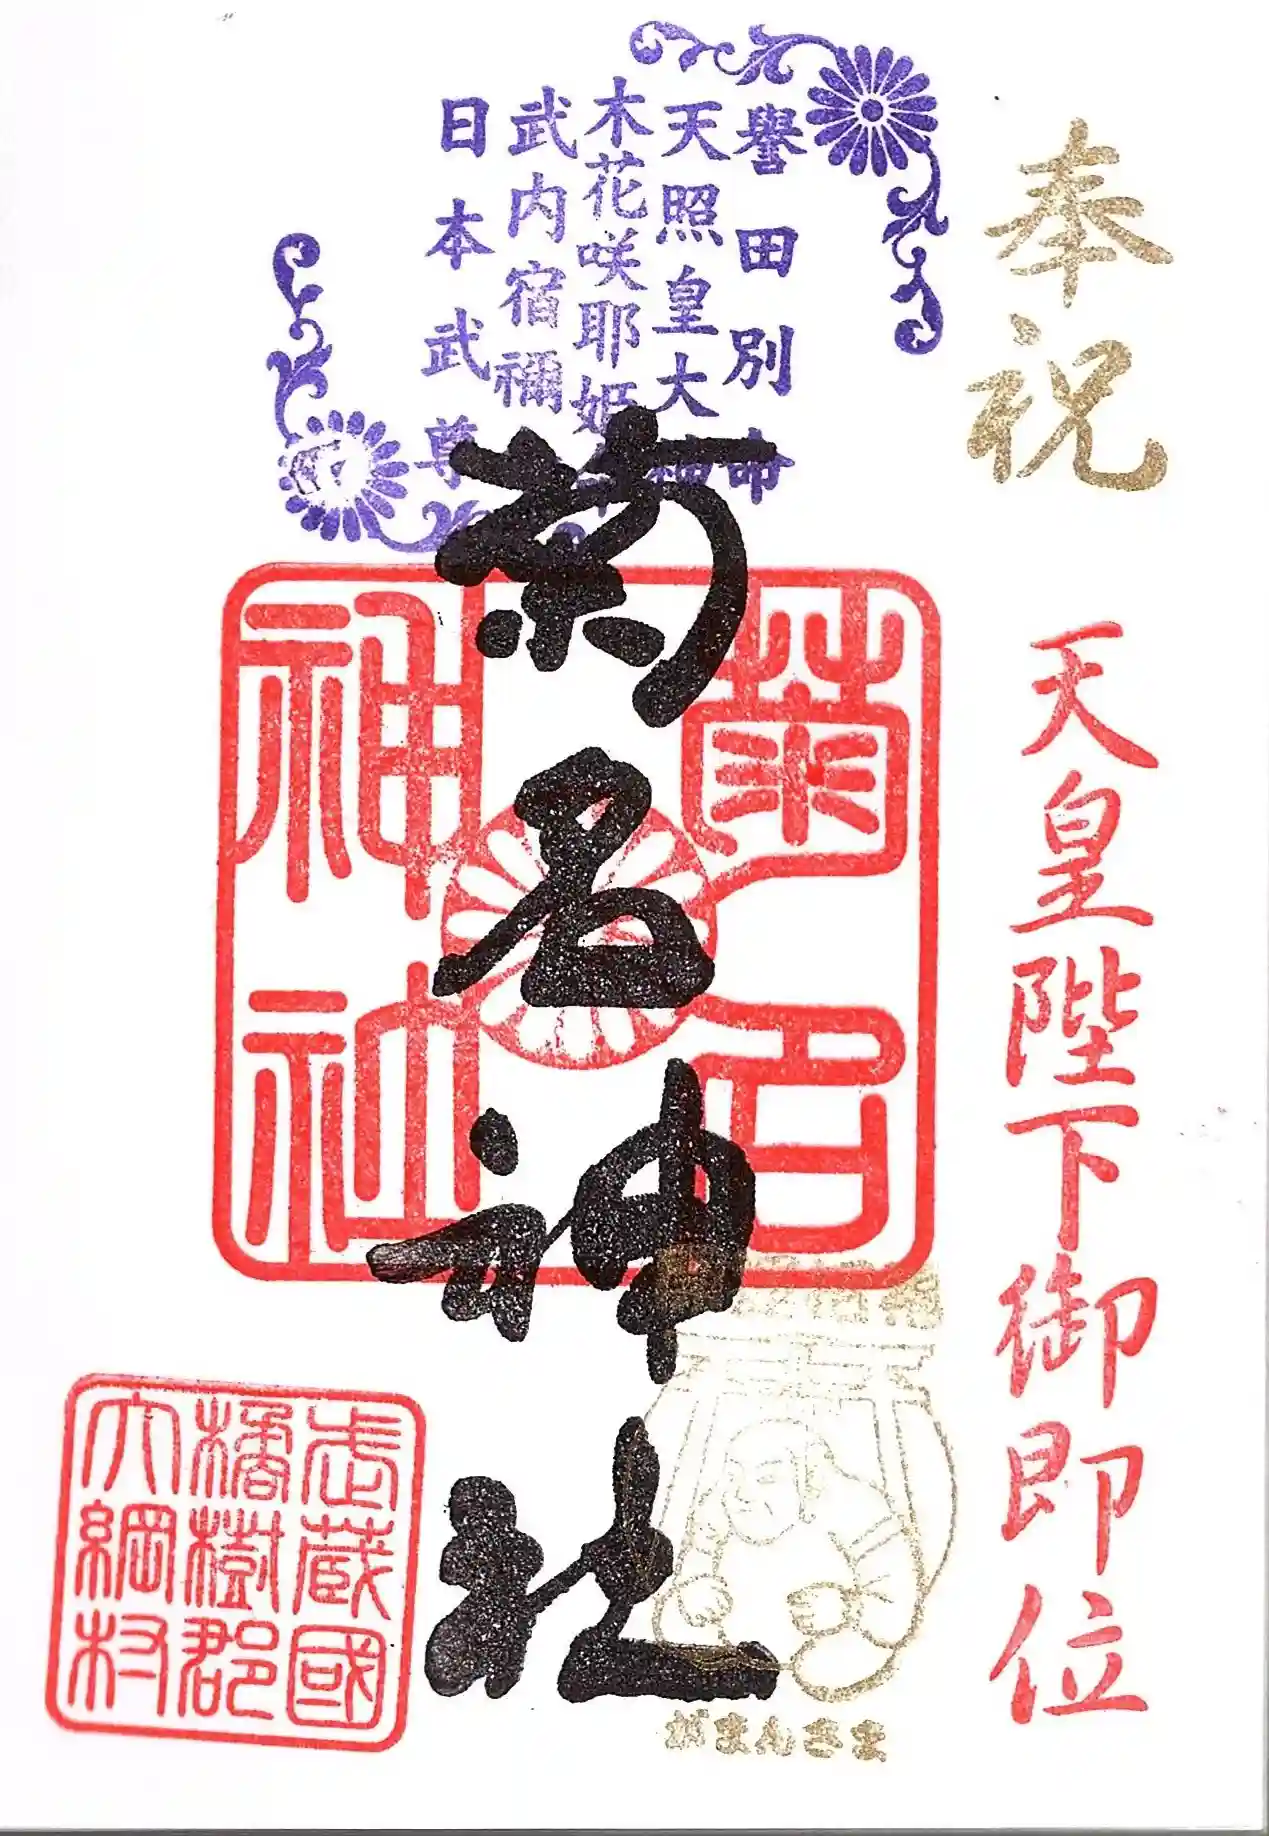 奉祝
天皇陛下御即位
譽田別命
天照皇大神
木花咲耶姫命
武内宿禰
日本武尊
菊名神社
菊名
神社
がまんさま
武蔵國
橘樹郡
大綱村